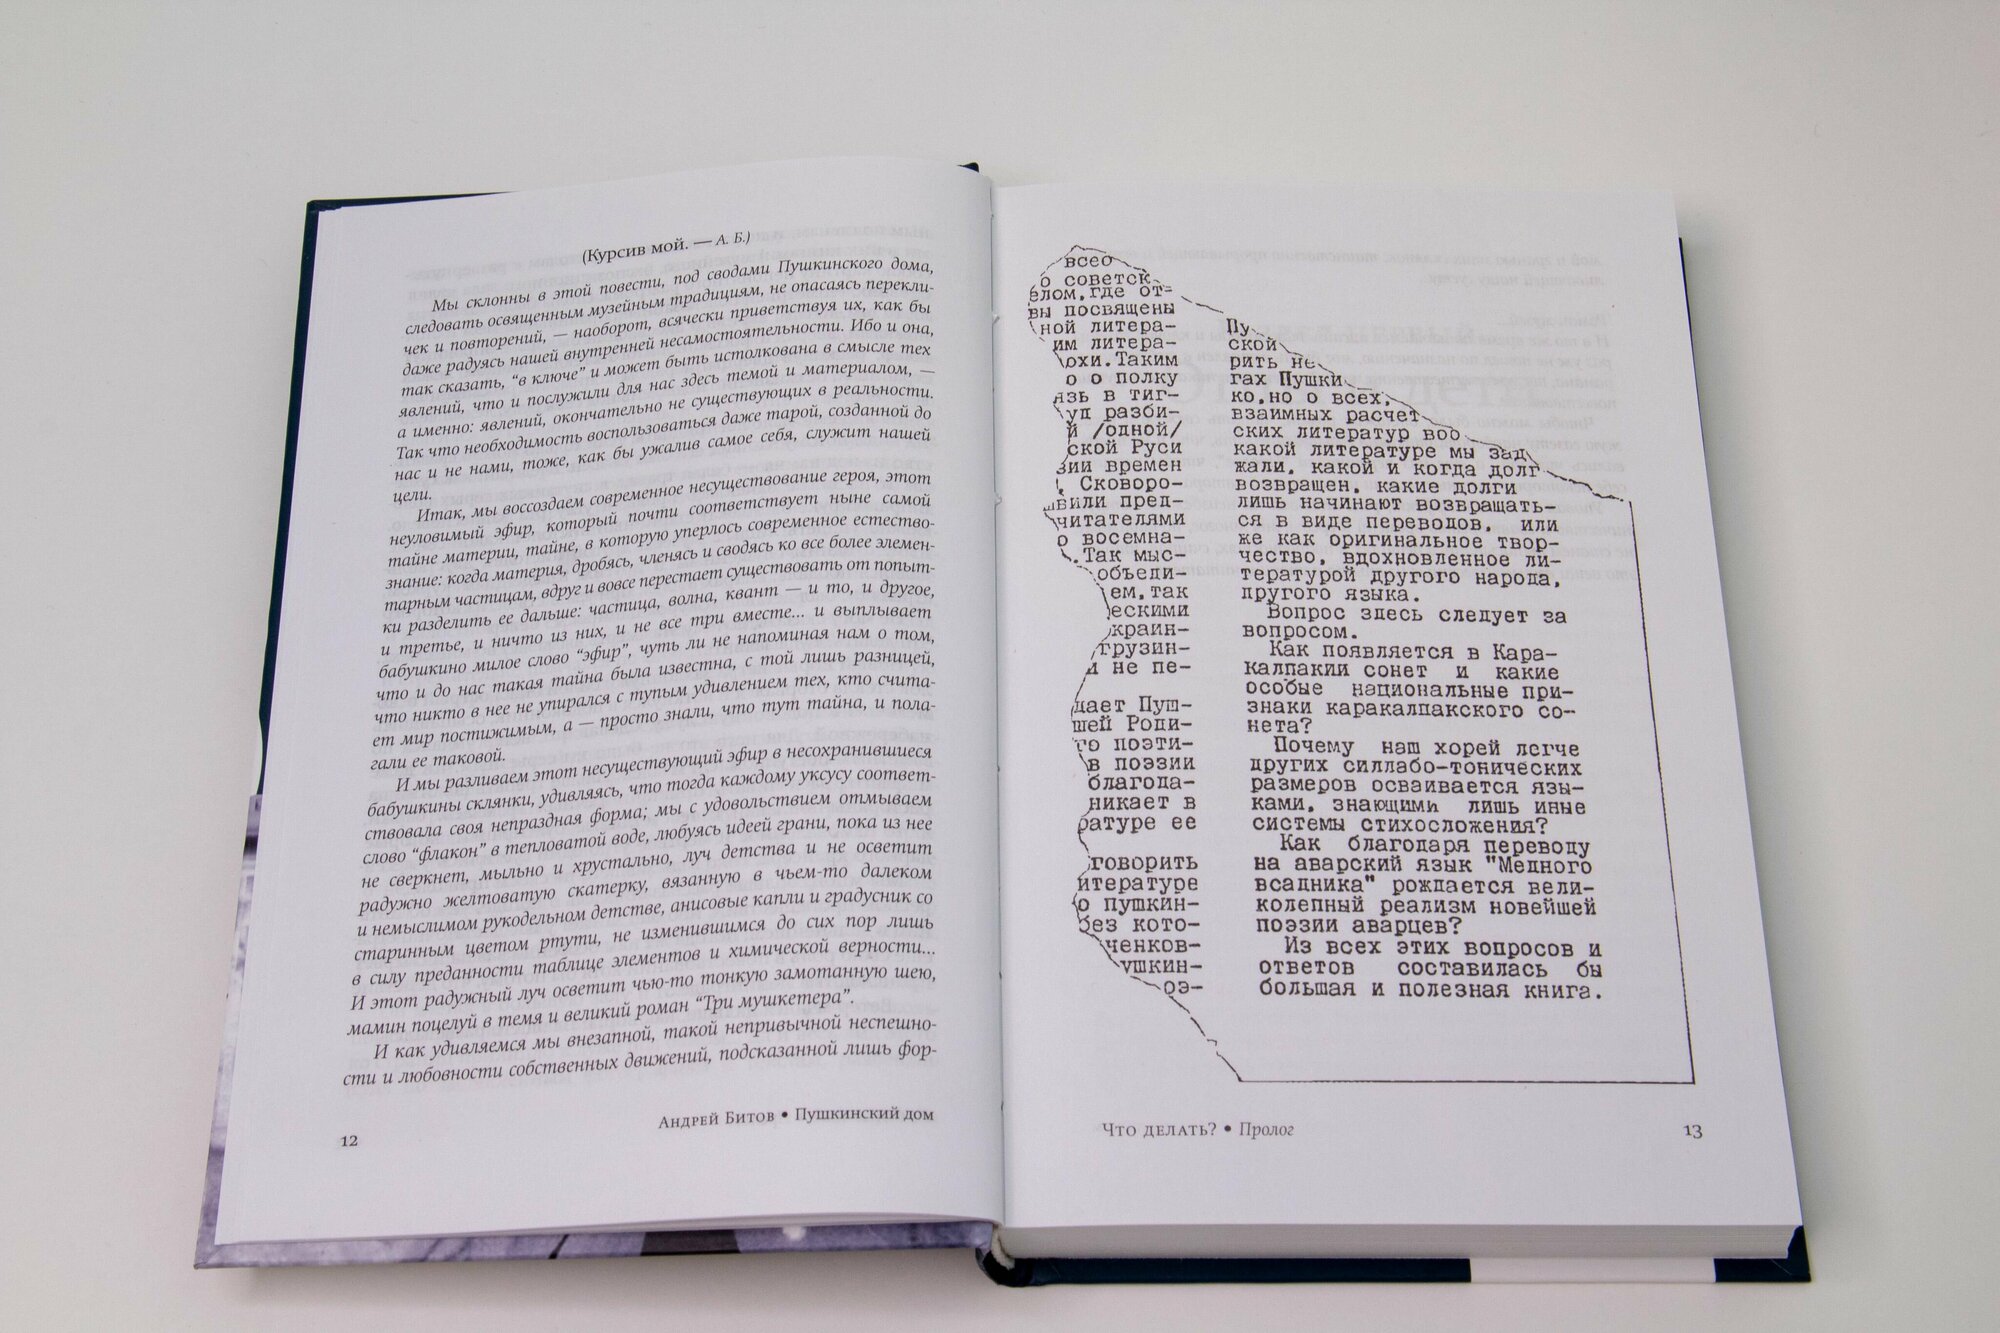 (Курсив мой. — А. Б.)
Мы склонны в этой повести, под сводами Пушкинского дома,
следовать освященным музейным традициям, не опасаясь перекли-
чек и повторений, — наоборот, всячески приветствуя их, как бы
даже радуясь нашей внутренней несамостоятельности. Ибо и она,
так сказать, “в ключе” и может быть истолкована в смысле тех
явлений, что и послужили для нас здесь темой и материалом, —
а именно: явлений, окончательно не существующих в реальности.
Так что необходимость воспользоваться даже тарой, созданной до
нас и не нами, тоже, как бы ужалив самое себя, служит нашей
цели.
Итак, мы воссоздаем современное несуществование героя, этот
неуловимый эфир, который почти соответствует ныне самой
тайне материи, тайне, в которую уперлось современное естество-
знание: когда материя, дробясь, членясь и сводясь ко все более элемен-
тарным частицам, вдруг и вовсе перестает существовать от попыт-
ки разделить ее дальше: частица, волна, квант — и то, и другое,
и третье, и ничто из них, и не все три вместе... и выплывает
бабушкино милое слово “эфир”, чуть ли не напоминая нам о том,
что и до нас такая тайна была известна, с той лишь разницей,
что никто в нее не упирался с тупым удивлением тех, кто счита-
ет мир постижимым, а — просто знали, что тут тайна, и пола-
гали ее таковой.
И мы разливаем этот несуществующий эфир в несохранившиеся
бабушкины склянки, удивляясь, что тогда каждому уксусу соответ-
ствовала своя непраздная форма; мы с удовольствием отмываем
слово “флакон” в тепловатой воде, любуясь идеей грани, пока из нее
не сверкнет, мыльно и хрустально, луч детства и не осветит
радужно желтоватую скатерку, вязанную в чьем-то далеком
и немыслимом рукодельном детстве, анисовые капли и градусник со
старинным цветом ртути, не изменившимся до сих пор лишь
в силу преданности таблице элементов и химической верности...
И этот радужный луч осветит чью-то тонкую замотанную шею,
мамин поцелуй в темя и великий роман “Три мушкетера”.
И как удивляемся мы внезапной, такой непривычной неспешно-
сти и любовности собственных движений, подсказанной лишь фор-
Андрей Битов • Пушкинский дом
12
всео
о советск-
елом, где от-
вы посвящены
ной литера-
им литера-
охи. Таким
о о полку
язь в тиг-
уд разби-
й /одной/
ской Руси
зии времен
, Сковоро-
швили пред-
читателями
о восемна-
. Так мыс-
объеди-
ем, так
ескими
краин-
грузин-
и не пе-
дает Пуш-
шей Роди-
го поэти-
в поэзии
благода-
никает в
ратуре ее
говорить
итературе
о пушкин-
без кото-
ченков-
ушкин-
оэ-
Пу
ской
рить не
гах Пушки
ко, но о всех,
взаимных расчет
ских литератур воо
какой литературе мы зад
жали, какой и когда долг
возвращен, какие долги
лишь начинают возвращать-
ся в виде переводов, или
же как оригинальное твор-
чество, вдохновленное ли-
тературой другого народа,
другого языка.
Вопрос здесь следует за
вопросом.
Как появляется в Кара-
калпакии сонет и какие
особые национальные при-
знаки каракалпакского со-
нета?
Почему наш хорей легче
других силлабо-тонических
размеров осваивается язы-
ками, знающими лишь иные
системы стихосложения?
Как благодаря переводу
на аварский язык "Медного
всадника" рождается вели-
колепный реализм новейшей
поэзии аварцев?
Из всех этих вопросов и
ответов составилась бы
большая и полезная книга.
Что делать? • Пролог
13